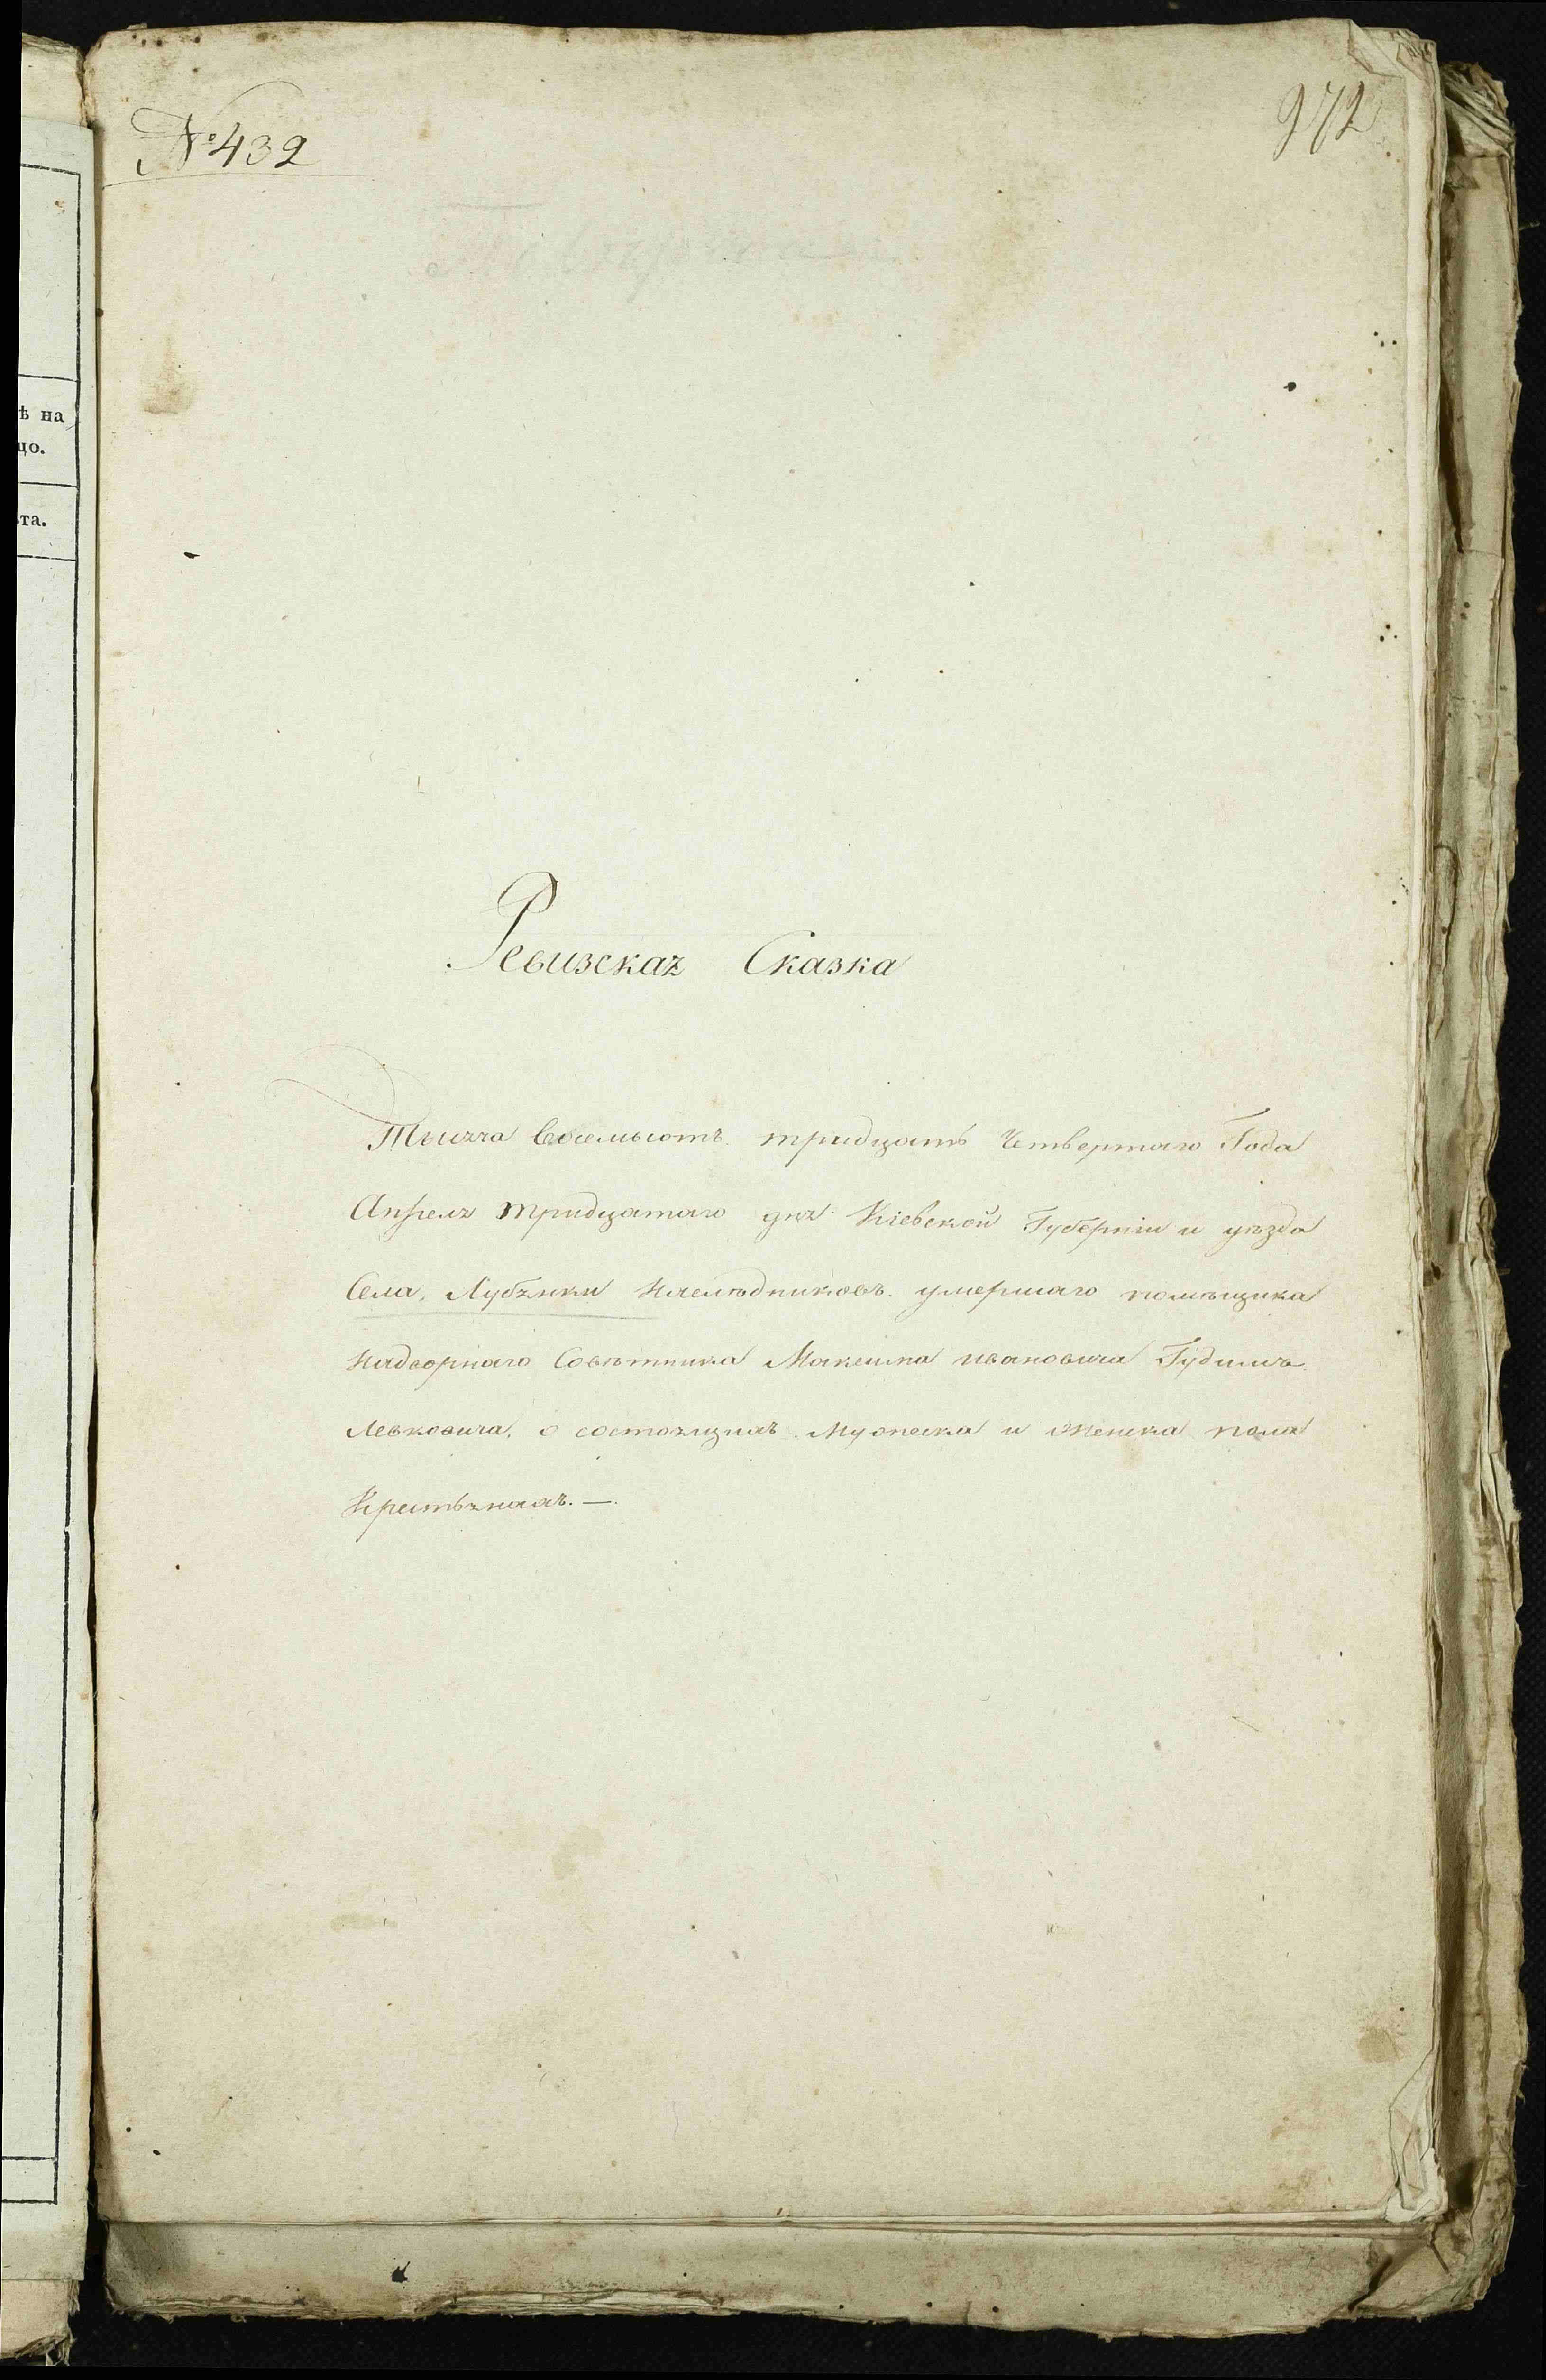 № 432
972
ѣ на
цо.
та.
Ревизская Сказка
Тысяча восемьсотъ тридцать Четвертаго Года
Апреля тридцатаго дня Кіевской Губерніи и уѣзда
Села, Лубянки наслѣдниковъ умершаго помѣщика
Надворнаго Совѣтника Максима ивановича Гудимъ
Левковича, о состоящихъ мужеска и женска пола
Крестьянахъ. —